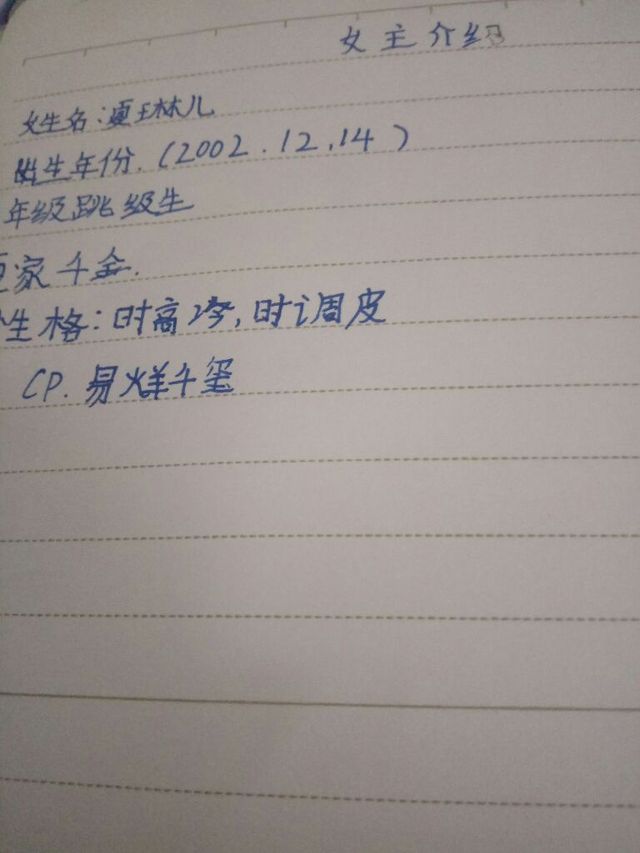 女主介绍
女生名:夏琳儿
出生年份.(2002.12.14)
年级跳级生
家千金.
性格:时高冷,时调皮
CP.易烊千玺